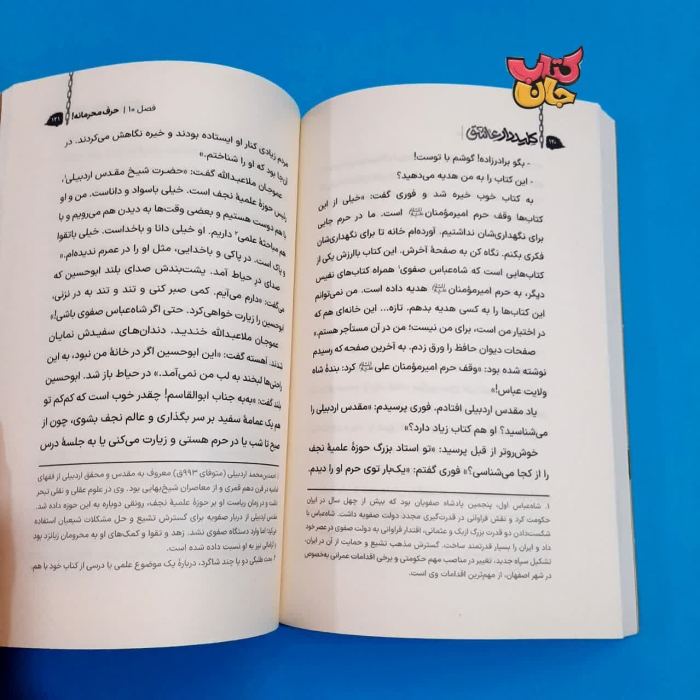 کتاب
جان
۱۲۰
کلیددار عاشق
- بگو برادرزاده! گوشم با توست!
- این کتاب را به من هدیه می‌دهید؟
به کتاب خوب خیره شد و فوری گفت: «خیلی از این
کتاب‌ها وقف حرم امیرمؤمنان است. ما در حرم جایی
برای نگهداری‌شان نداشتیم. آورده‌ام خانه تا برای نگهداری‌شان
فکری بکنم. نگاه کن به صفحهٔ آخرش. این کتاب باارزش یکی از
کتاب‌هایی است که شاه‌عباس صفوی۱ همراه کتاب‌های نفیس
دیگر، به حرم امیرمؤمنان هدیه داده است. من نمی‌توانم
این کتاب‌ها را به کسی هدیه بدهم. تازه... این خانه‌ای هم که
در اختیار من است، برای من نیست؛ من در آن مستأجر هستم.»
صفحات دیوان حافظ را ورق زدم. به آخرین صفحه که رسیدم
نوشته شده بود: «وقف حرم امیرمؤمنان علی کرد: بندهٔ شاه
ولایت عباس!»
یاد مقدس اردبیلی افتادم. فوری پرسیدم: «مقدس اردبیلی را
می‌شناسید؟ او هم کتاب زیاد دارد؟»
خوش‌روتر از قبل پرسید: «تو استاد بزرگ حوزهٔ علمیهٔ نجف
را از کجا می‌شناسی؟» فوری گفتم: «یک‌بار توی حرم او را دیدم.
۱. شاه‌عباس اول، پنجمین پادشاه صفویان بود که بیش از چهل سال در ایران
حکومت کرد و نقش فراوانی در قدرت‌گیری مجدد دولت صفویه داشت. شاه‌عباس با
شکست‌دادن دو قدرت بزرگ ازبک و عثمانی، اقتدار فراوانی به دولت صفوی در عصر خود
داد و ایران را بسیار قدرتمند ساخت. گسترش مذهب تشیع و حمایت از آن در ایران،
تشکیل سپاه جدید، تغییر در مناصب مهم حکومتی و برخی اقدامات عمرانی به‌خصوص
در شهر اصفهان، از مهم‌ترین اقدامات وی است.
فصل ۱۰ | حرف محرمانه!
۱۲۱
مردم زیادی کنار او ایستاده بودند و خیره نگاهش می‌کردند. در
آن‌جا بود که او را شناختم.»
عموجان ملاعبدالله گفت: «حضرت شیخ مقدس اردبیلی۱،
رئیس حوزهٔ علمیهٔ نجف است. خیلی باسواد و داناست. من و او
با هم دوست هستیم و بعضی وقت‌ها به دیدن هم می‌رویم و با
هم مباحثهٔ علمی۲ داریم. او خیلی دانا و باخداست. خیلی باتقوا
و پاک است. در پاکی و باخدایی، مثل او را در عمرم ندیده‌ام.»
صدای در حیاط آمد. پشت‌بندش صدای بلند ابوحسین که
می‌گفت: «دارم می‌آیم. کمی صبر کنی و تند و تند به در نزنی،
ابوحسین را زیارت خواهی‌کرد. حتی اگر شاه‌عباس صفوی باشی!»
عموجان ملاعبدالله خندید. دندان‌های سفیدش نمایان
شدند. آهسته گفت: «این ابوحسین اگر در خانهٔ من نبود، به این
راحتی‌ها لبخند به لب من نمی‌آمد.» در حیاط باز شد. ابوحسین
بلند گفت: «به‌به جناب ابوالقاسم! چقدر خوب است که کم‌کم تو
هم یک عمامهٔ سفید بر سر بگذاری و عالم نجف بشوی، چون از
صبح تا شب یا در حرم هستی و زیارت می‌کنی یا به جلسهٔ درس
معروف به مقدس و محقق اردبیلی از فقهای
شیعه در قرن دهم قمری و از معاصران شیخ‌بهایی بود. وی در علوم عقلی و نقلی تبحر
داشت و در زمان ریاست او بر حوزهٔ علمیهٔ نجف، رونقی دوباره به این حوزه داده شد.
مقدس اردبیلی از دربار صفویه برای گسترش تشیع و حل مشکلات شیعیان استفاده
می‌کرد؛ اما وارد دستگاه صفوی نشد. زهد و تقوا و کمک‌های او به محرومان زبانزد بود
نیز به او نسبت داده شده است.
دو یا چند شاگرد، دربارهٔ یک موضوع علمی یا درسی از کتاب خود با هم.